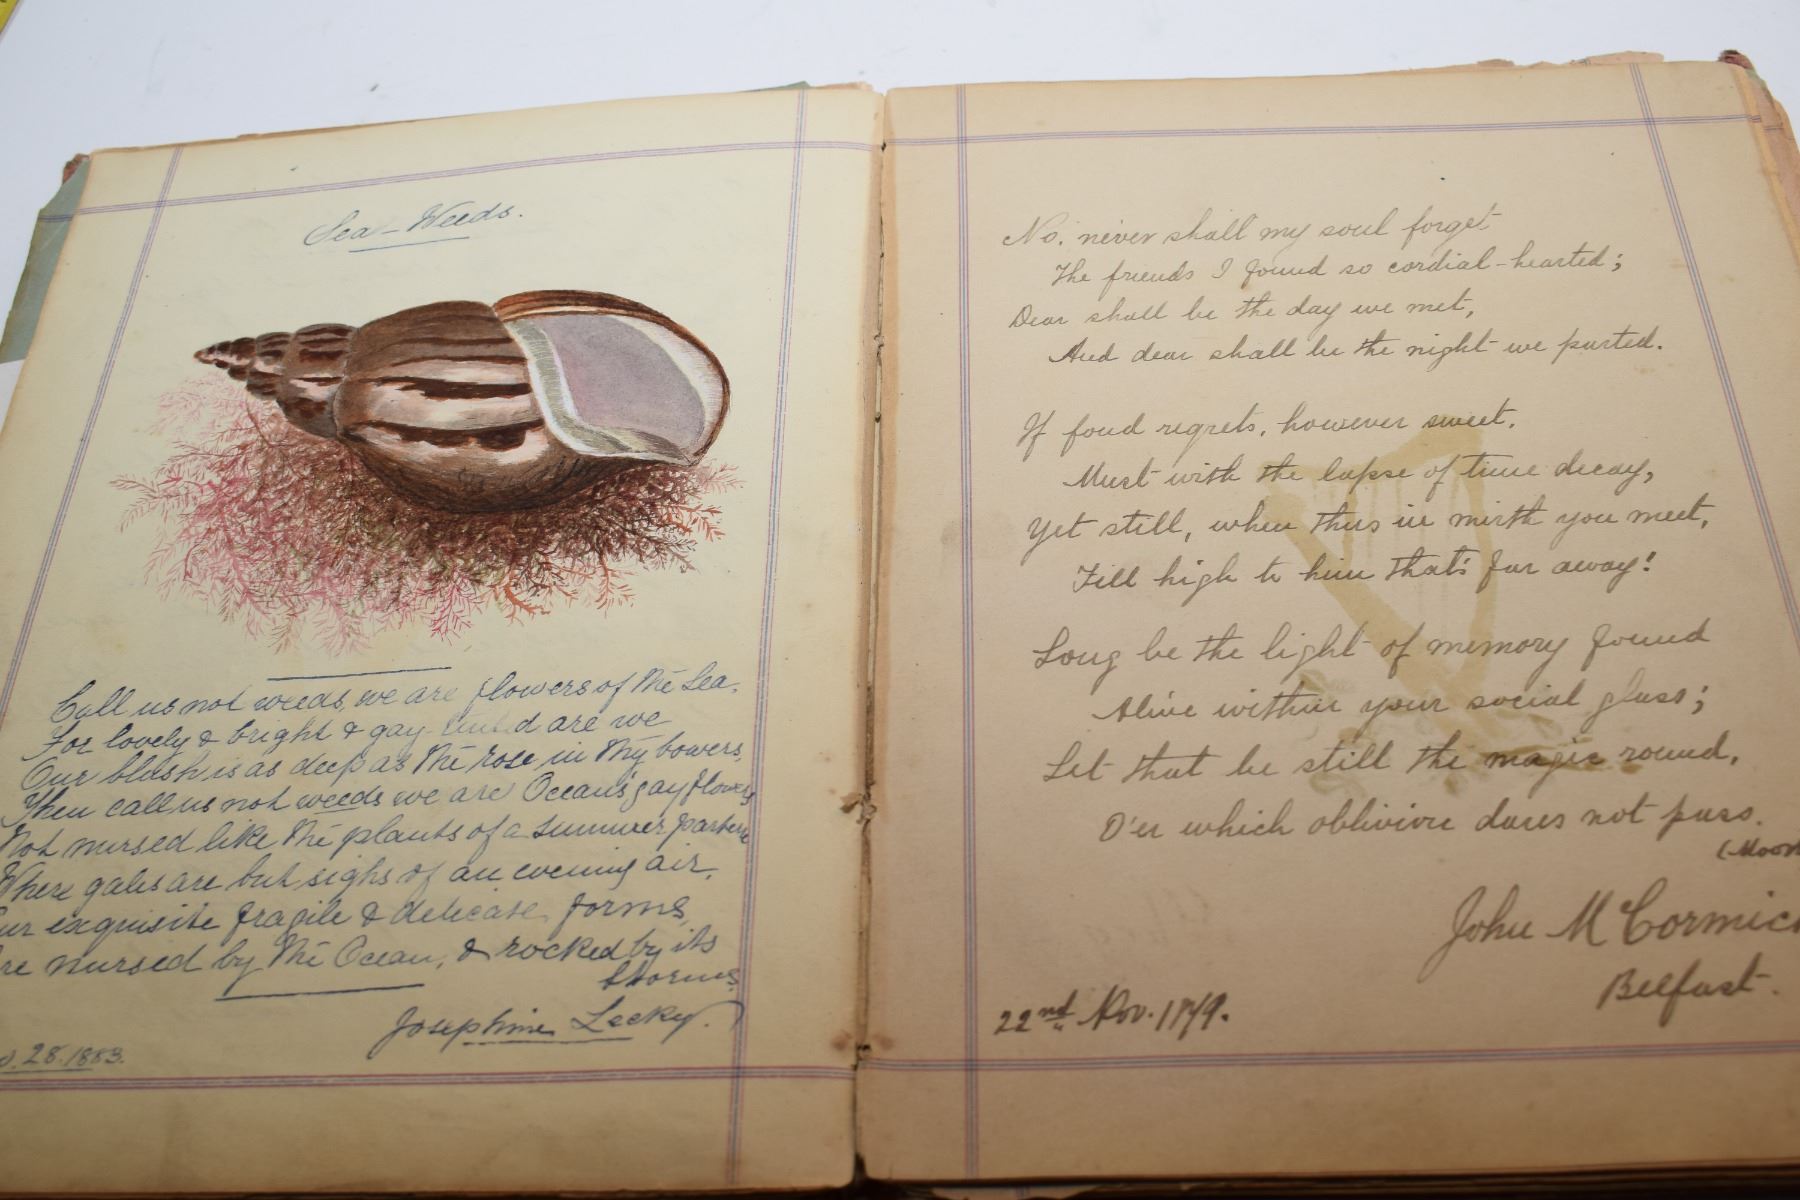 Sea-Weeds.
Call us not weeds, we are flowers of the Sea.
For lovely & bright & gay are we
Our blush is as deep as the rose in thy bowers,
Then call us not weeds we are Ocean's gay flowers
Not nursed like the plants of a summer parterre
Where gales are but sighs of an evening air,
ur exquisite fragile & delicate forms
re nursed by the Ocean, & rocked by its
Storms.
Josephine Lecky.
28. 1883.
No, never shall my soul forget
The friends I found so cordial-hearted;
Dear shall be the day we met,
And dear shall be the night we parted.
If fond regrets, however sweet,
Must with the lapse of time decay,
Yet still, when thus in mirth you meet,
Fill high to him that's far away!
Long be the light of memory found
Alive within your social glass;
Let that be still the magic round,
O'er which oblivion dares not pass.
(Moor
John McCormic
Belfast.
22nd Nov. 1879.